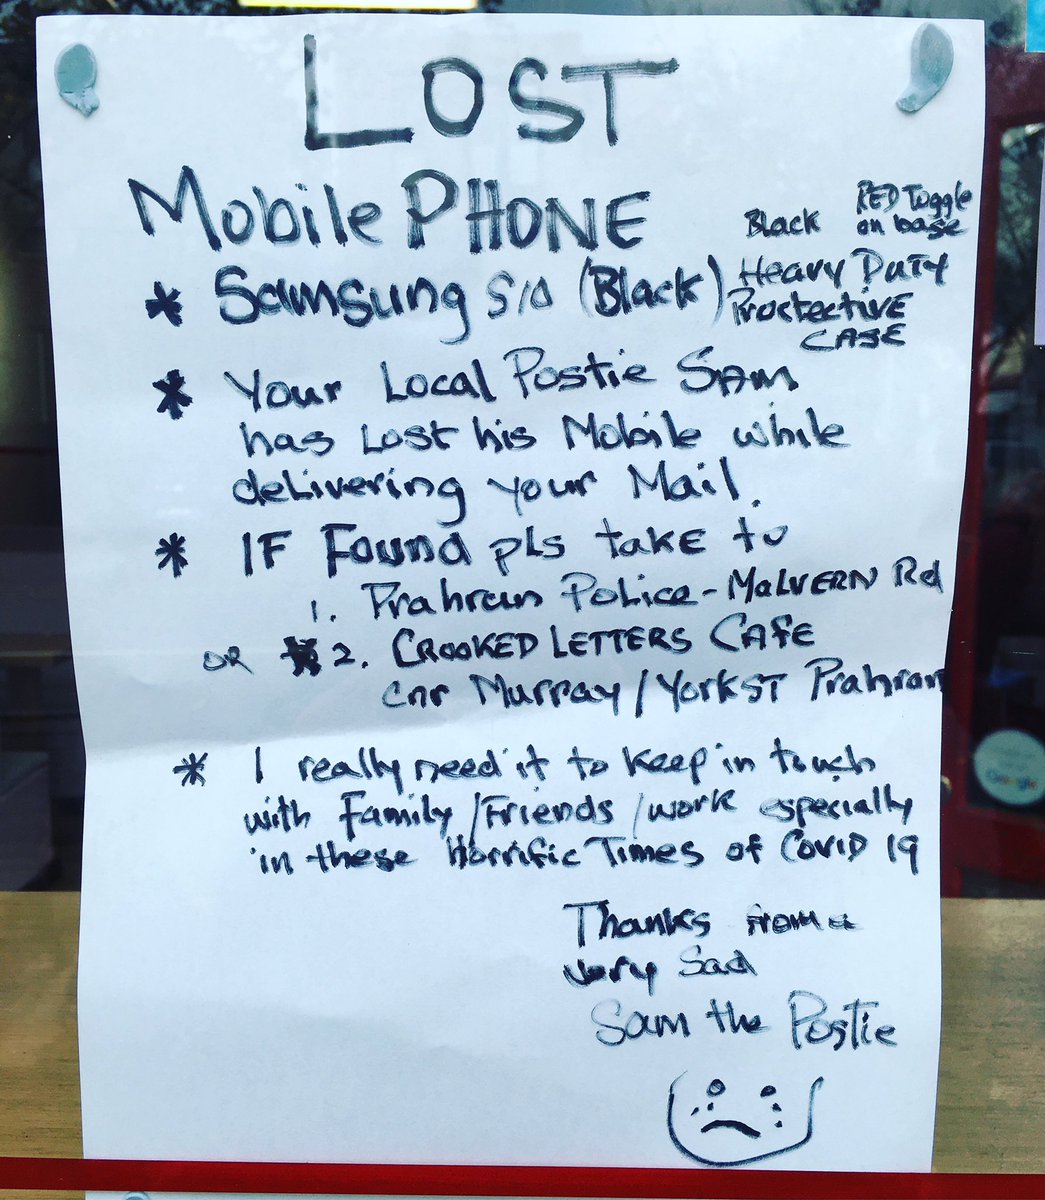 LOST
Mobile PHONE
Black RED Toggle on base
* Samsung S10 (Black) Heavy Duty
Proctective
CASE
* Your Local Postie Sam
has Lost his Mobile while
delivering your Mail.
* IF Found pls take to
1. Prahran Police - MALVERN Rd
OR 2. CROOKED LETTERS CAFE
cnr Murray / York ST Prahran
* I really need it to keep in touch
with Family / Friends / work especially
in these Horrific Times of Covid 19
Thanks from a
very Sad
Sam the Postie
Google